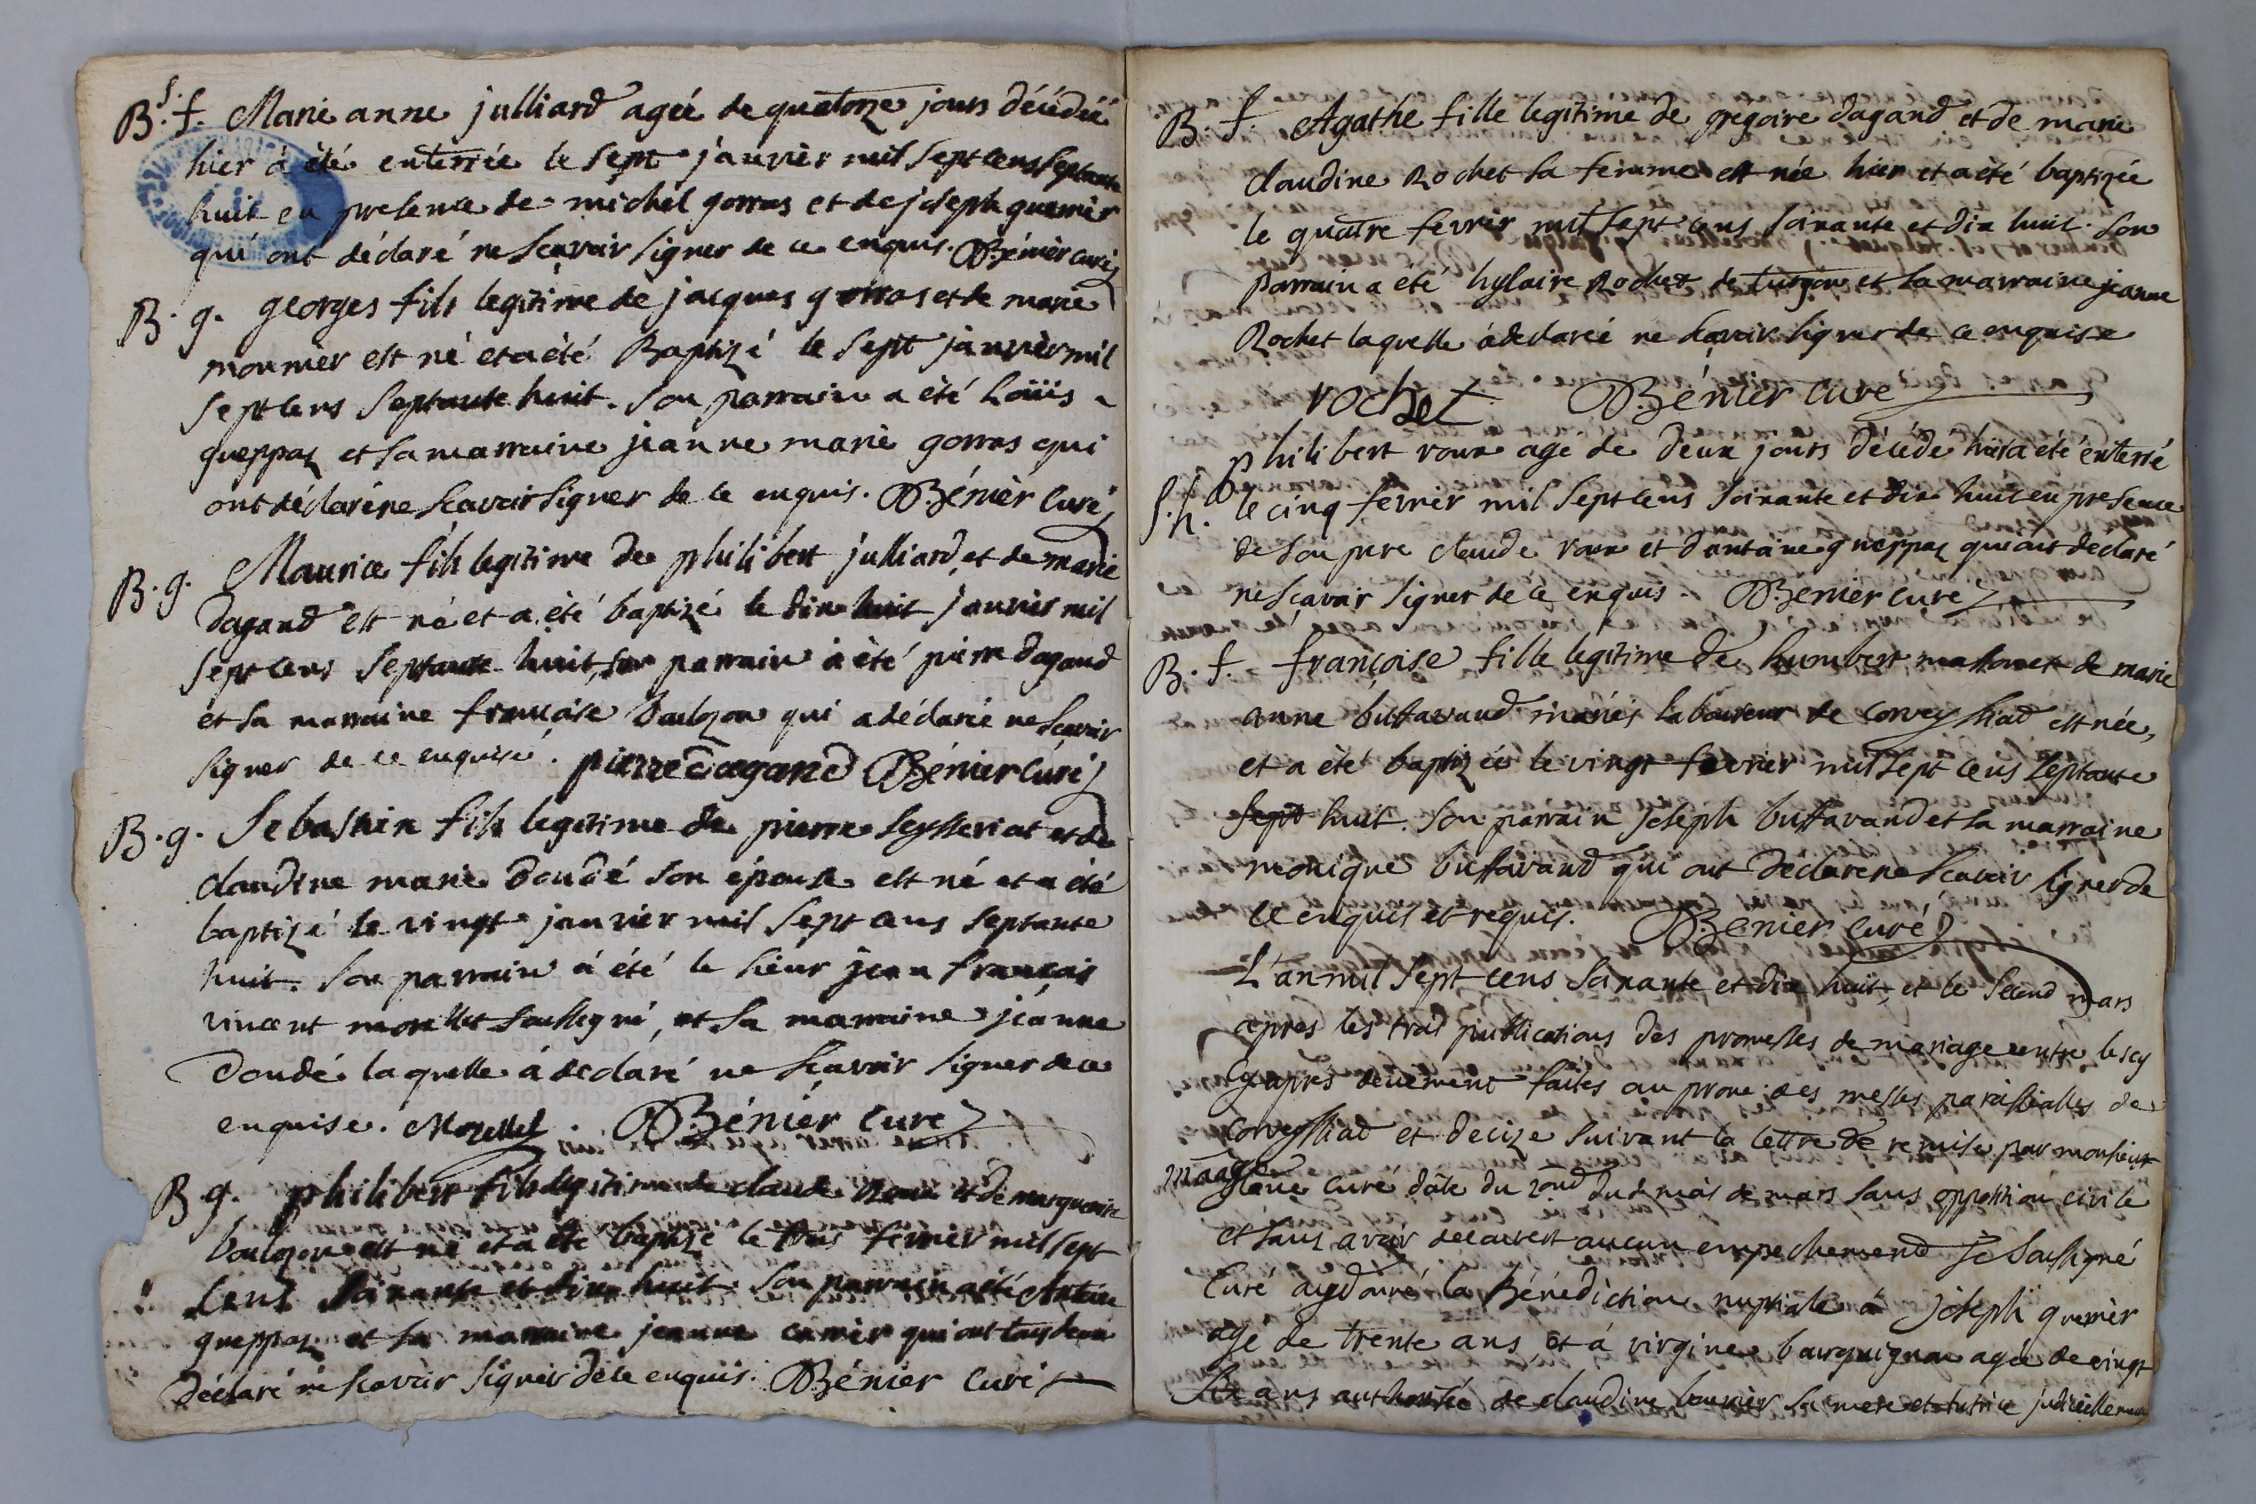 B. s. f. Marie anne julliard agée de quatorze jours décédée
hier à été enterrée le sept janvier mil sept cens septante
huit en presence de michel gorras et de joseph querrier
qui ont déclaré ne scavoir signer de ce enquis. Bénier curé
B. g. georges fils legitime de jacques gorras et de marie
monnier est né et a été Baptizé le sept janvier mil
sept cens septante huit. son parrain a été Loüis
queppaz et sa marraine jeanne marie gorras qui
ont déclaré ne scavoir signer de ce enquis. Bénier Curé
B. g. Maurice fils legitime de philibert julliard et de marie
dagand est né et a été baptizé le dix huit janvier mil
sept cens septante huit, son parrain à été pierre dagand
et sa marraine françoise boulzon qui a déclaré ne scavoir
signer de ce enquise. pierre dagand Bénier Curé
B. g. Sebastien fils legitime de pierre seysseriat et de
claudine marie doudé son épouse est né et a été
baptizé le vingt janvier mil sept cens septante
huit. son parrain à été le sieur jean françois
vincent morellet soussigné, et sa marraine jéanne
Doudé laquelle à declaré ne sçavoir signer de ce
enquise. Morellet. Bénier Curé
B g. philibert fils legitime de claude Roux et de marguerite
boulozon est né et a été baptizé le trois fevrier mil sept
Cens soixante et dix huit. son parrain a été Antoine
queppaz et sa marraine jeanne carrier qui ont tous deux
déclaré ne scavoir signer de ce enquis. Bénier Curé
B. f. Agathe fille legitime de gregoire dagand et de marie
claudine Rochet sa femme est née hier et a été baptizée
le quatre fevrier mil sept cens soixante et dix huit. son
parrain a été hylaire Rochet de turgon et sa marraine jeanne
Rochet laquelle à declaré ne scavoir signer de ce enquise
rochet Bénier Curé
philibert roux agé de deux jours décédé hier a été enterré
S. h. le cinq fevrier mil sept cens soixante et dix huit en presence
de son pere claude roux et d'antoine queppaz qui ont déclaré
ne sçavoir signer de ce enquis. Benier curé
B. f. françoise fille legitime de humbert et de marie
anne buffavand mariés laboureur de Corveyssiad est née,
et a été baptizée le vingt fevrier mil sept cens septante
sept huit. son parrain joseph buffavand et sa marraine
monique buffavand qui ont déclaré ne scavoir signer de
ce enquis et requis. Benier curé
L'an mil sept cens soixante et dix huit, et le second mars
apres les trois publications des promesses de mariage entre les cy
Cy apres deuement faites au prone des messes paroissialles de
Corveyssiad et decize suivant la lettre de remise par monsieur
curé date du 2ond dud mois de mars sans opposition civile
et sans avoir decouvert aucun empechement je soussigné
Curé ay donné la Bénédiction nuptiale à joseph querrier
agé de trente ans, et à virgine bourguignon agée de vingt
six ans authorisée de claudine bouvier sa mere et tutrice